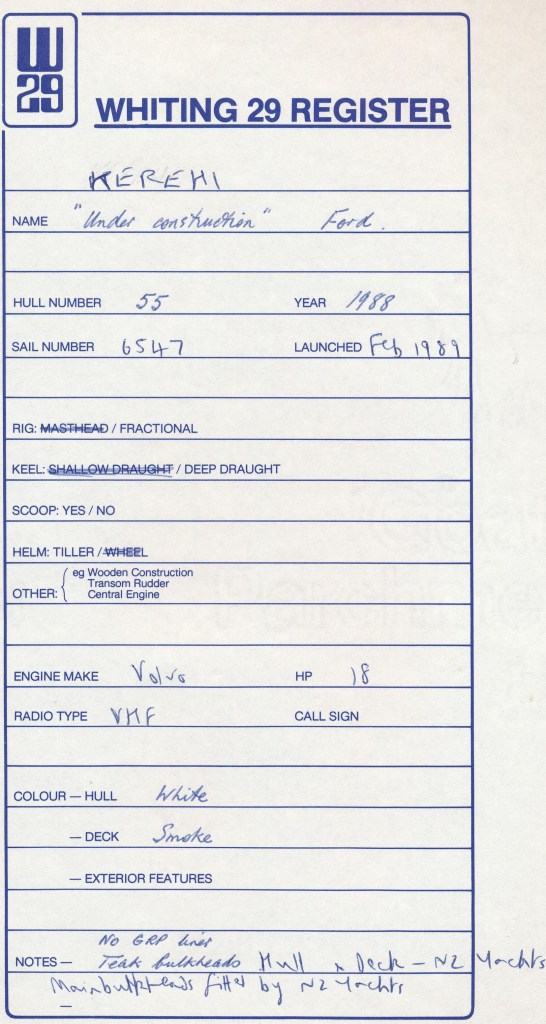 W
29
WHITING 29 REGISTER
KEREHI
NAME "Under construction" Ford.
HULL NUMBER 55 YEAR 1988
SAIL NUMBER 6547 LAUNCHED Feb 1989
RIG: MASTHEAD / FRACTIONAL
KEEL: SHALLOW DRAUGHT / DEEP DRAUGHT
SCOOP: YES / NO
HELM: TILLER / WHEEL
eg Wooden Construction
Transom Rudder
OTHER: Central Engine
ENGINE MAKE Volvo HP 18
RADIO TYPE VHF CALL SIGN
COLOUR — HULL White
— DECK Smoke
— EXTERIOR FEATURES
No GRP liner
NOTES — Teak bulkheads Hull & Deck - NZ Yachts
Main bulkheads fitted by NZ Yachts
—